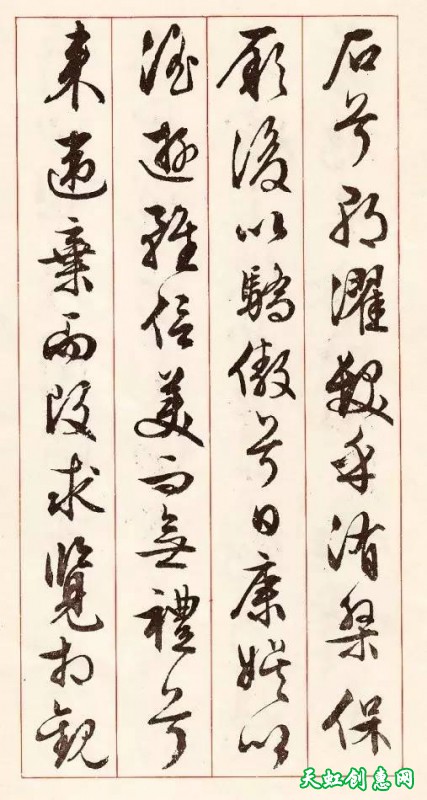 石兮朝濯髮乎洧槃保
厥後以驕傲兮日康娛以
淫遊雖信美而無禮兮
來違棄而改求覽相觀
天虹创惠网